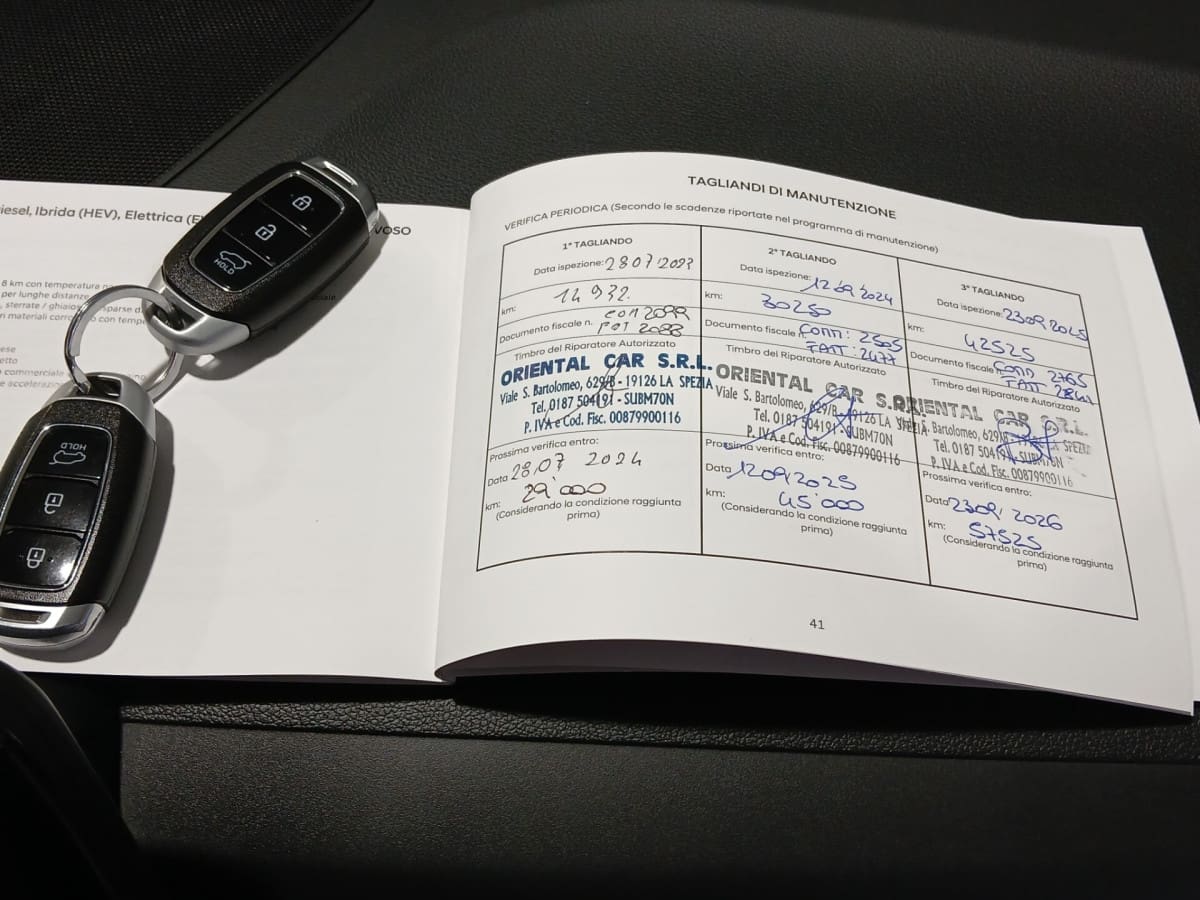 iesel, Ibrida (HEV), Elettrica (E
VOSO
8 km con temperatura
per lunghe distanze
sterrate / ghiaio
sparse d
n materiali corro
o con tempe
commerciale
e accelerazio
HOLD
HOLD
TAGLIANDI DI MANUTENZIONE
VERIFICA PERIODICA (Secondo le scadenze riportate nel programma di manutenzione)
1° TAGLIANDO
Data ispezione: 28 07 2023
km: 14 932.
Documento fiscale n. COM 2099
FAT 2088
Timbro del Riparatore Autorizzato
ORIENTAL CAR S.R.L.
Viale S. Bartolomeo, 629/B - 19126 LA SPEZIA
Tel. 0187 504191 - SUBM70N
P. IVA e Cod. Fisc. 00879900116
Prossima verifica entro:
Data 28.07 2024
km: 29'000
(Considerando la condizione raggiunta
prima)
2° TAGLIANDO
Data ispezione: 12 09/2024
km: 30250
Documento fiscale n. COMM: 2505
FATT: 2477
Timbro del Riparatore Autorizzato
ORIENTAL CAR S.R.
Viale S. Bartolomeo, 629/B - 19126 LA SPEZIA
Tel. 0187 504191 - SUBM70N
P. IVA e Cod. Fisc. 00879900116
Prossima verifica entro:
Data 12 09/2025
km: 45'000
(Considerando la condizione raggiunta
prima)
3° TAGLIANDO
Data ispezione: 23 09/2025
km: 42525
Documento fiscale n. COMM 2765
FATT 2841
Timbro del Riparatore Autorizzato
ORIENTAL CAR S.R.L.
Bartolomeo, 629/B LA SPEZIA
Tel. 0187 504191 - SUBM70N
P. IVA e Cod. Fisc. 00879900116
Prossima verifica entro:
Data 23 09/ 2026
km: 57525
(Considerando la condizione raggiunta
prima)
41